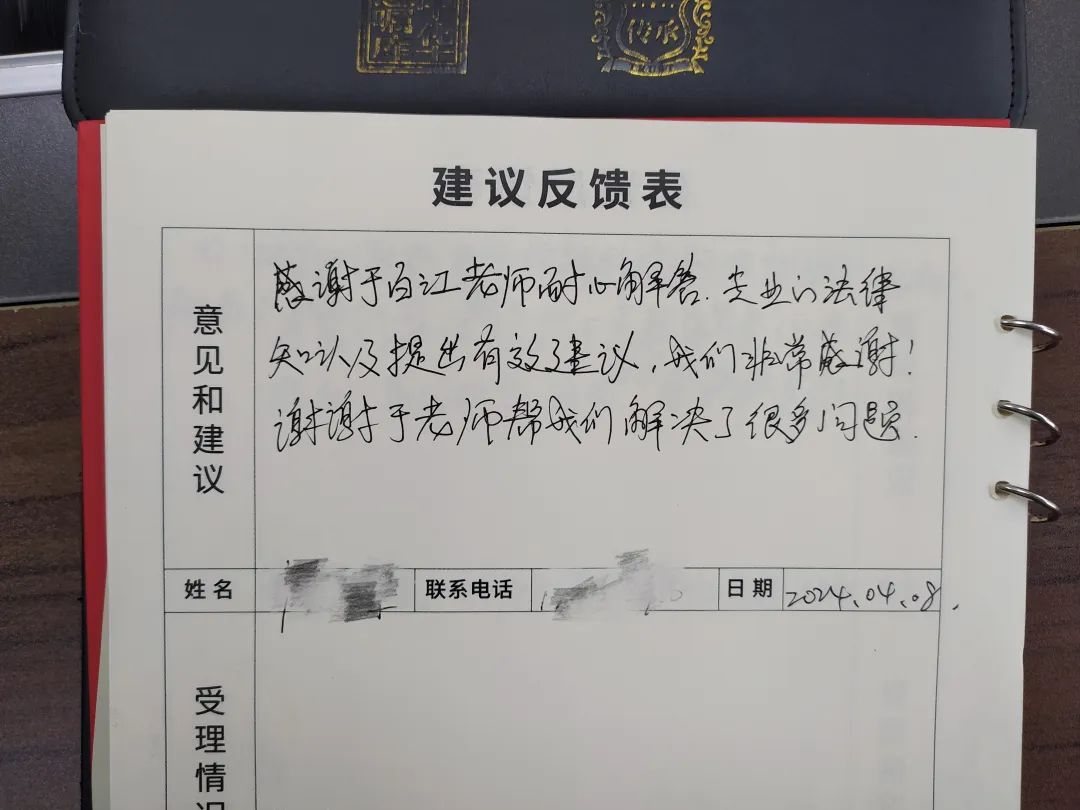 传承
建议反馈表
意见和建议
感谢于百江老师耐心解答.专业的法律
知识及提出有效了建议,我们非常感谢!
谢谢于老师帮我们解决了很多问题.
姓名
联系电话
日期 2024.04.08.
受理情况